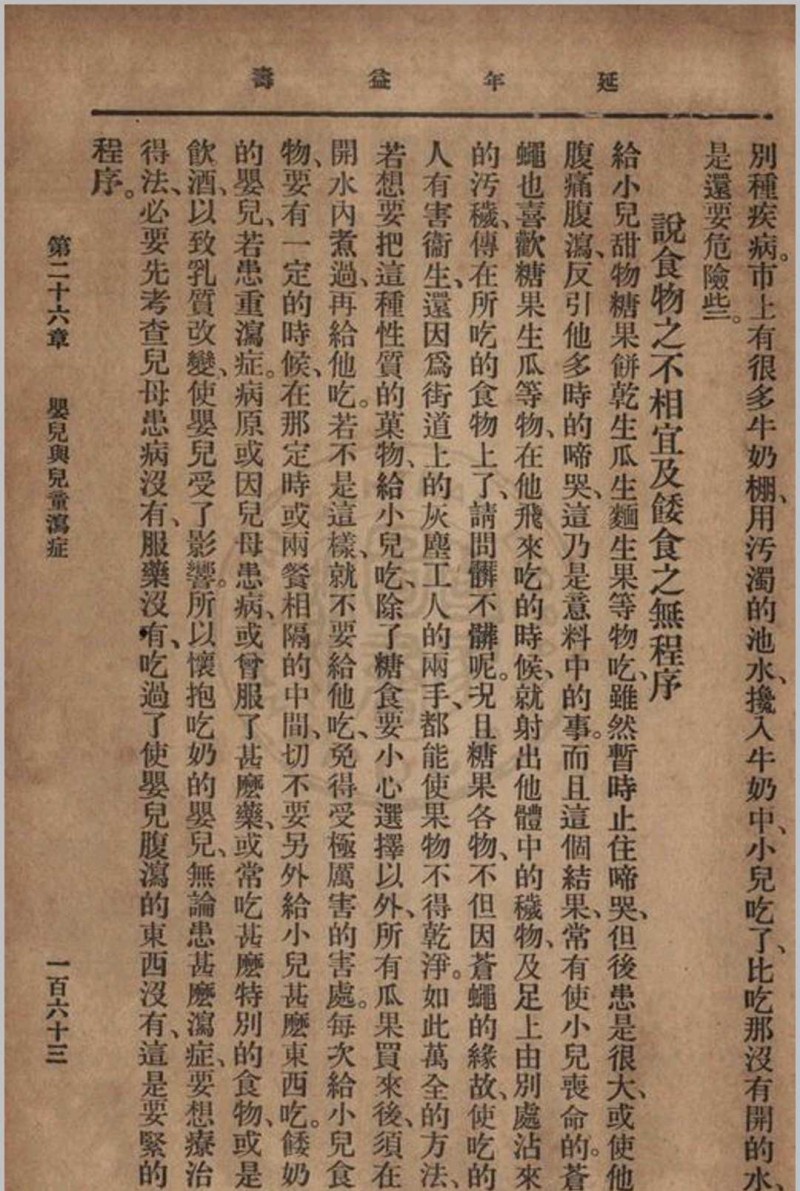 延年益壽
別種疾病。市上有很多牛奶棚、用汚濁的池水、攙入牛奶中、小兒吃了、比吃那沒有開的水、
是還要危險些。
說食物之不相宜及餧食之無程序
給小兒甜物糖果餅乾生瓜生麵生果等物吃、雖然暫時止住啼哭、但後患是很大、或使他
腹痛腹瀉、反引他多時的啼哭、這乃是意料中的事。而且這個結果、常有使小兒喪命的。蒼
蠅也喜歡糖果生瓜等物、在他飛來吃的時候、就射出他體中的穢物、及足上由別處沾來
的汚穢、傳在所吃的食物上了、請問髒不髒呢。况且糖果各物、不但因蒼蠅的緣故、使吃的
人有害衞生、還因爲街道上的灰塵工人的兩手、都能使果物不得乾淨。如此萬全的方法、
若想要把這種性質的菓物、給小兒吃、除了糖食要小心選擇以外、所有瓜果買來後、須在
開水內煮過、再給他吃。若不是這樣、就不要給他吃、免得受極厲害的害處。每次給小兒食
物、要有一定的時候、在那定時或兩餐相隔的中間、切不要另外給小兒甚麼東西吃。餧奶
的嬰兒、若患重瀉症。病原或因兒母患病、或曾服了甚麼藥、或常吃甚麼特別的食物、或是
飲酒、以致乳質改變、使嬰兒受了影響。所以懷抱吃奶的嬰兒、無論患甚麼瀉症、要想療治
得法、必要先考查兒母患病沒有、服藥沒有、吃過了使嬰兒腹瀉的東西沒有、這是要緊的
程序。
第二十六章　嬰兒與兒童瀉症
一百六十三